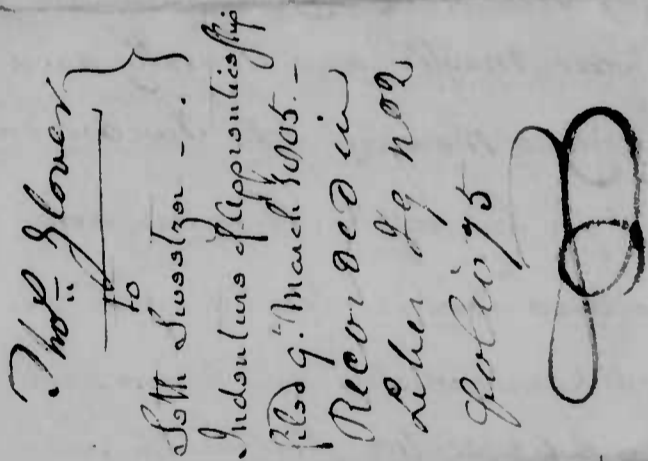 Thos. Glover
to
Seth Sweetzer -.
Indenture of Apprenticeship
filed 9. March 1805.-
Recorded in
Liber no 2
folio 75